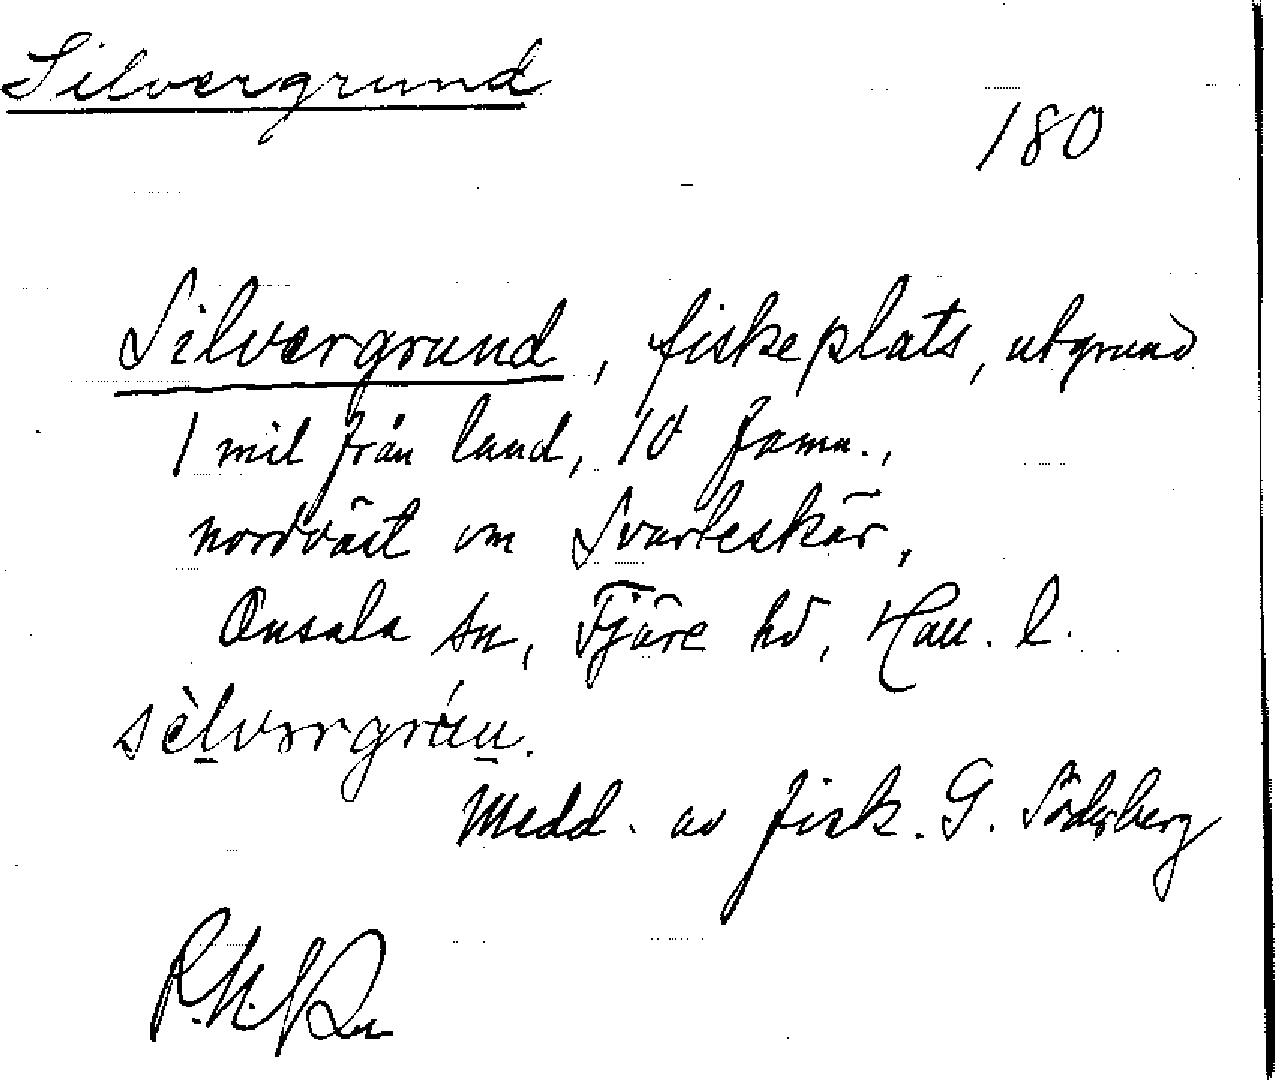 Silvergrund
180
Silvergrund, fiskeplats, utgrund
1 mil från land, 10 famn.,
nordväst om Svarteskär,
Onsala sn, Fjäre hd, Hall. l.
Medd. av fisk. G. Söderberg